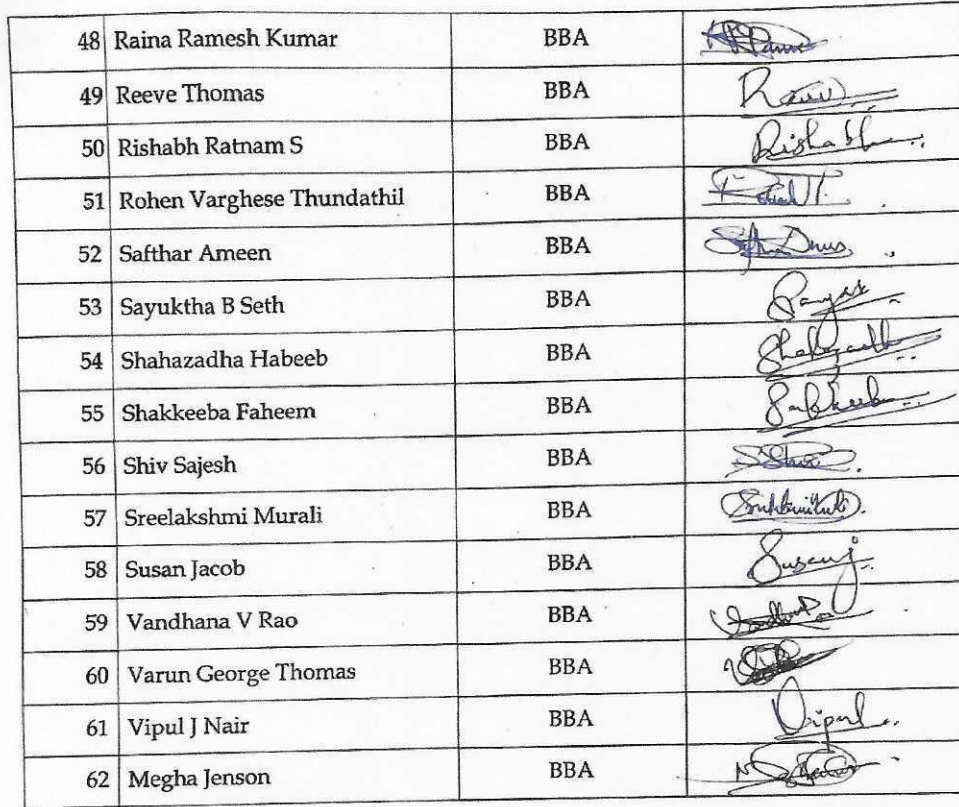 48 Raina Ramesh Kumar BBA
49 Reeve Thomas BBA
50 Rishabh Ratnam S BBA Rishabh
51 Rohen Varghese Thundathil BBA
52 Safthar Ameen BBA
53 Sayuktha B Seth BBA
54 Shahazadha Habeeb BBA
55 Shakkeeba Faheem BBA
56 Shiv Sajesh BBA Shiv
57 Sreelakshmi Murali BBA
58 Susan Jacob BBA Susan J
59 Vandhana V Rao BBA
60 Varun George Thomas BBA
61 Vipul J Nair BBA Vipul
62 Megha Jenson BBA